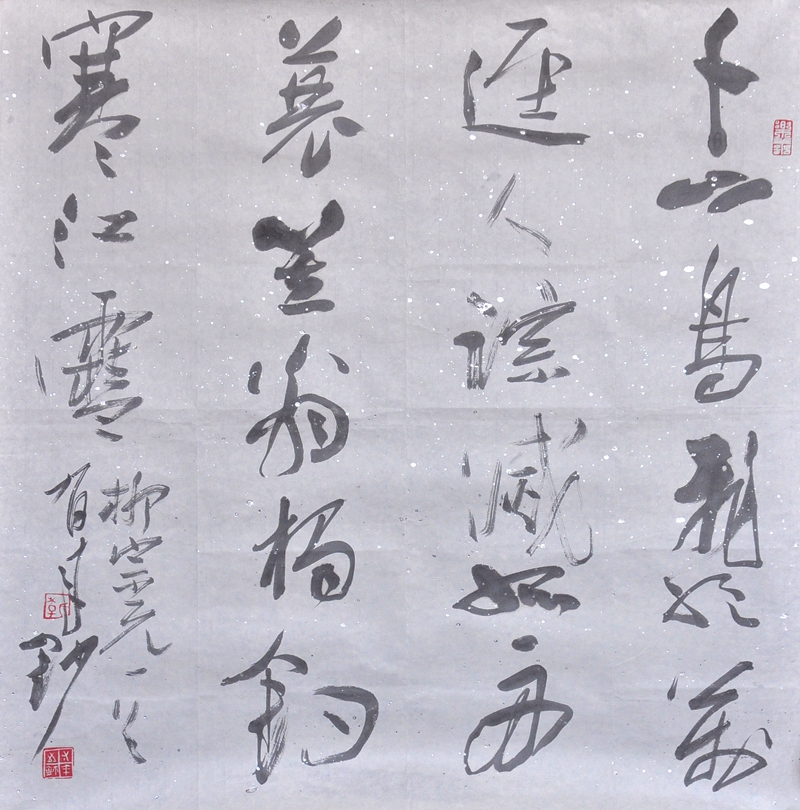 千山鳥飛絕萬
逕人踪滅孤舟
蓑笠翁獨釣
寒江雪
柳宗元一首